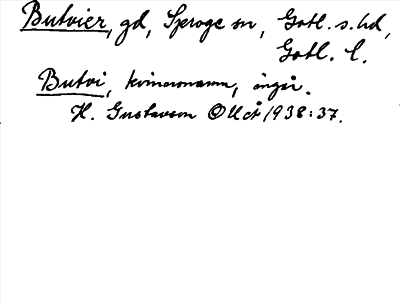 Butvier, gd, Sproge sn, Gotl. s. hd,
Gotl. l.
Butvi, kvinnonamn, ingår.
H. Gustavson OUÅ 1938:37.